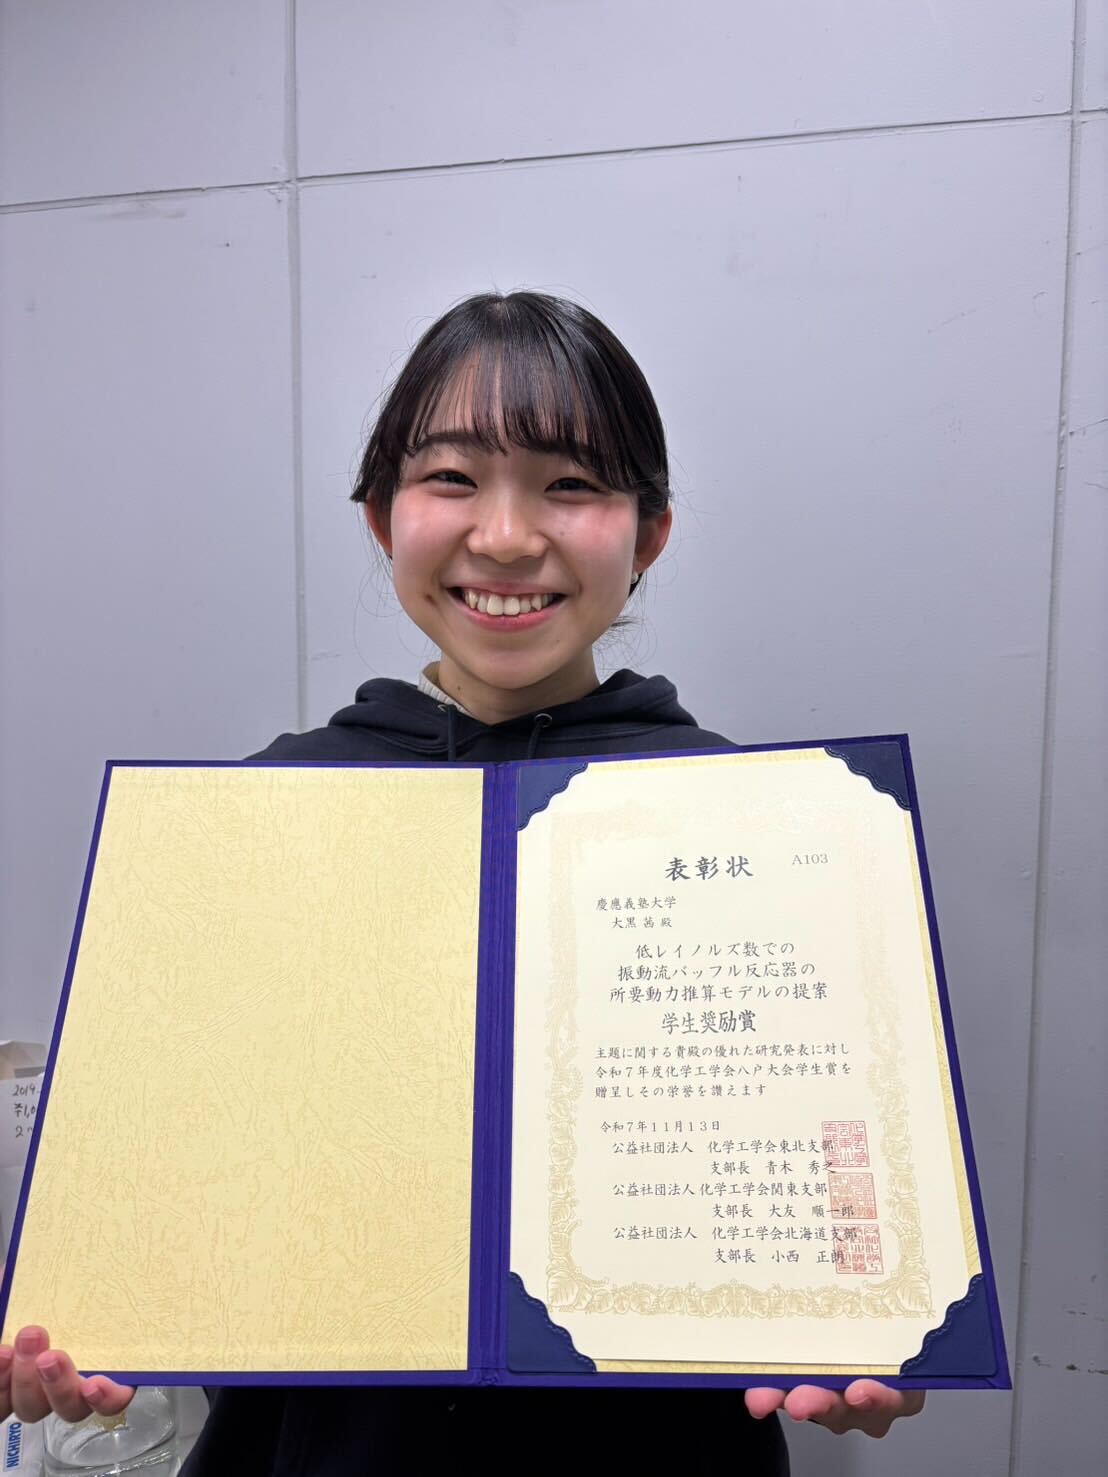 表彰状
A103
慶應義塾大学
大黒 茜 殿
低レイノルズ数での
振動流バッフル反応器の
所要動力推算モデルの提案
学生奨励賞
主題に関する貴殿の優れた研究発表に対し
令和7年度化学工学会八戸大会学生賞を
贈呈しその栄誉を讃えます
令和7年11月13日
公益社団法人 化学工学会東北支部
支部長 青木 秀之
公益社団法人 化学工学会関東支部
支部長 大友 順一郎
公益社団法人 化学工学会北海道支部
支部長 小西 正朗
2019.
NICHIRYO